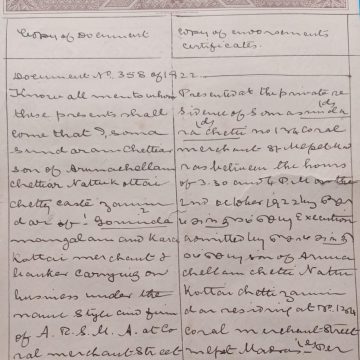 Copy of Document
Copy of endorsements
certificates.
Document No. 358 of 1922
Know all men to whom
these presents shall
come that I, Soma
sundaram Chettiar
son of Arunachellam
chettiar Nattukottai
chetty caste zamin
dar of
mangalam and Kara
Kottai merchant &
banker carrying on
business under the
name style and firm
of A. R. S. M. A. at Co
ral merchant street
Presented at the private re
sidence of Somasunda
ra chetti no 124 Coral
merchant St
ras between the hours
of 3.30 and 4 P.M. on the
2nd october 1922 by
Execution
admitted by
son of Aruna
chellam chetti Nattu
Kottai chetti zamin
dar residing at No.
coral merchant street
Madras